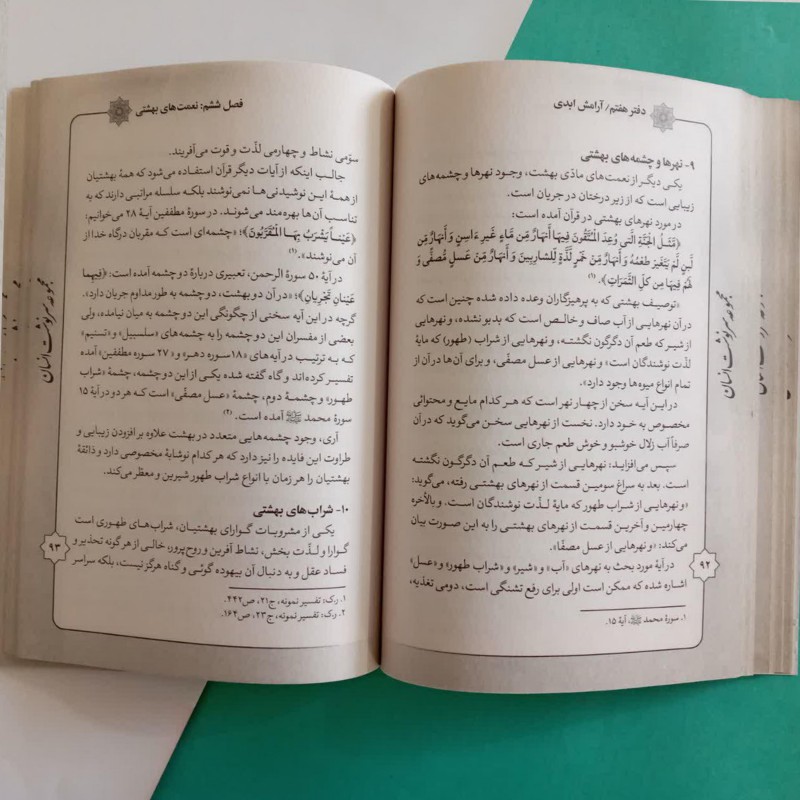 دفتر هفتم/ آرامش ابدی
۹- نهرها و چشمه‌های بهشتی
یکی دیگر از نعمت‌های مادّی بهشت، وجود نهرها و چشمه‌های
زیبایی است که از زیر درختان در جریان است.
در مورد نهرهای بهشتی در قرآن آمده است:
﴿مَثَلُ الْجَنَّةِ الَّتي وُعِدَ الْمُتَّقُونَ فيها أَنْهارٌ مِّن مَّاءٍ غَيرِ ءَاسِنٍ وَ أَنْهارٌ مِّن
لَّبَنٍ لَّمْ يَتَغَيَّرَ طَعْمُهُ وَ أَنْهارٌ مِّنْ خَمْرٍ لَّذَّةٍ لِّلشَّارِبِينَ وَ أَنْهارٌ مِّنْ عَسَلٍ مُّصَفًّى وَ
لَهُمْ فيها مِن كلِّ الثَّمَرَاتِ﴾. (۱)
«توصیف بهشتی که به پرهیزگاران وعده داده شده چنین است که
در آن نهرهایی از آب صاف و خالص است که بدبو نشده، و نهرهایی
از شیر که طعم آن دگرگون نگشته، و نهرهایی از شراب (طهور) که مایهٔ
لذّت نوشندگان است» و نهرهایی از عسل مصفّی، و برای آن‌ها در آن از
تمام انواع میوه‌ها وجود دارد».
در این آیه سخن از چهار نهر است که هر کدام مایع و محتوائی
مخصوص به خود دارد. نخست از نهرهایی سخن می‌گوید که در آن
صرفاً آب زلال خوشبو و خوش طعم جاری است.
سپس می‌افزاید: نهرهایی از شیر که طعم آن دگرگون نگشته
است. بعد به سراغ سومین قسمت از نهرهای بهشتی رفته، می‌گوید:
«و نهرهایی از شراب طهور که مایهٔ لذّت نوشندگان است. و بالأخره
چهارمین و آخرین قسمت از نهرهای بهشتی را به این صورت بیان
می‌کند: «و نهرهایی از عسل مصفّا».
در آیهٔ مورد بحث به نهرهای «آب» و «شیر» و «شراب طهور» و «عسل»
اشاره شده که ممکن است اولی برای رفع تشنگی است، دومی تغذیه،
۱. سورهٔ محمد ﷺ، آیهٔ ۱۵.
۹۲
مجموعه سرنوشت انسان
فصل ششم: نعمت‌های بهشتی
سوّمی نشاط و چهارمی لذّت و قوت می‌آفریند.
جالب اینکه از آیات دیگر قرآن استفاده می‌شود که همهٔ بهشتیان
از همهٔ این نوشیدنی‌ها نمی‌نوشند بلکه سلسله مراتبی دارند که به
تناسب آن‌ها بهره‌مند می‌شوند. در سورهٔ مطففین آیهٔ ۲۸ می‌خوانیم:
﴿عَيْناً يَشْرَبُ بِهَا الْمُقَرَّبُونَ﴾؛ «چشمه‌ای است که مقربان درگاه خدا از
آن می‌نوشند». (۱)
در آیهٔ ۵۰ سورهٔ الرحمن، تعبیری دربارهٔ دو چشمه آمده است: ﴿فِيهِما
عَيْنانِ تَجْرِيانِ﴾؛ «در آن دو بهشت، دو چشمه به طور مداوم جریان دارد».
گرچه در این آیه سخنی از چگونگی این دو چشمه به میان نیامده، ولی
بعضی از مفسران این دو چشمه را به چشمه‌های «سلسبیل» و «تسنیم»
که به ترتیب در آیه‌های «۱۸ سوره دهر» و «۲۷ سوره مطففین» آمده
تفسیر کرده‌اند و گاه گفته شده یکی از این دو چشمه، چشمهٔ «شراب
طهور» و چشمهٔ دوم، چشمهٔ «عسل مصفّی» است که هر دو در آیهٔ ۱۵
سورهٔ محمد ﷺ آمده است. (۲)
آری، وجود چشمه‌هایی متعدد در بهشت علاوه بر افزودن زیبایی و
طراوت این فایده را نیز دارد که هر کدام نوشابهٔ مخصوصی دارد و ذائقهٔ
بهشتیان را هر زمان با انواع شراب طهور شیرین و معطر می‌کند.
۱۰- شراب‌های بهشتی
یکی از مشروبات گوارای بهشتیان، شراب‌های طهوری است
گوارا و لذّت بخش، نشاط آفرین و روح‌پرور، خالی از هر گونه تحذیر و
فساد عقل و به دنبال آن بیهوده گوئی و گناه هرگز نیست، بلکه سراسر
۱. ر.ک: تفسیر نمونه، ج۲۱، ص۴۴۲.
۲. ر.ک: تفسیر نمونه، ج۲۳، ص۱۶۴.
۹۳
مجموعه سرنوشت انسان